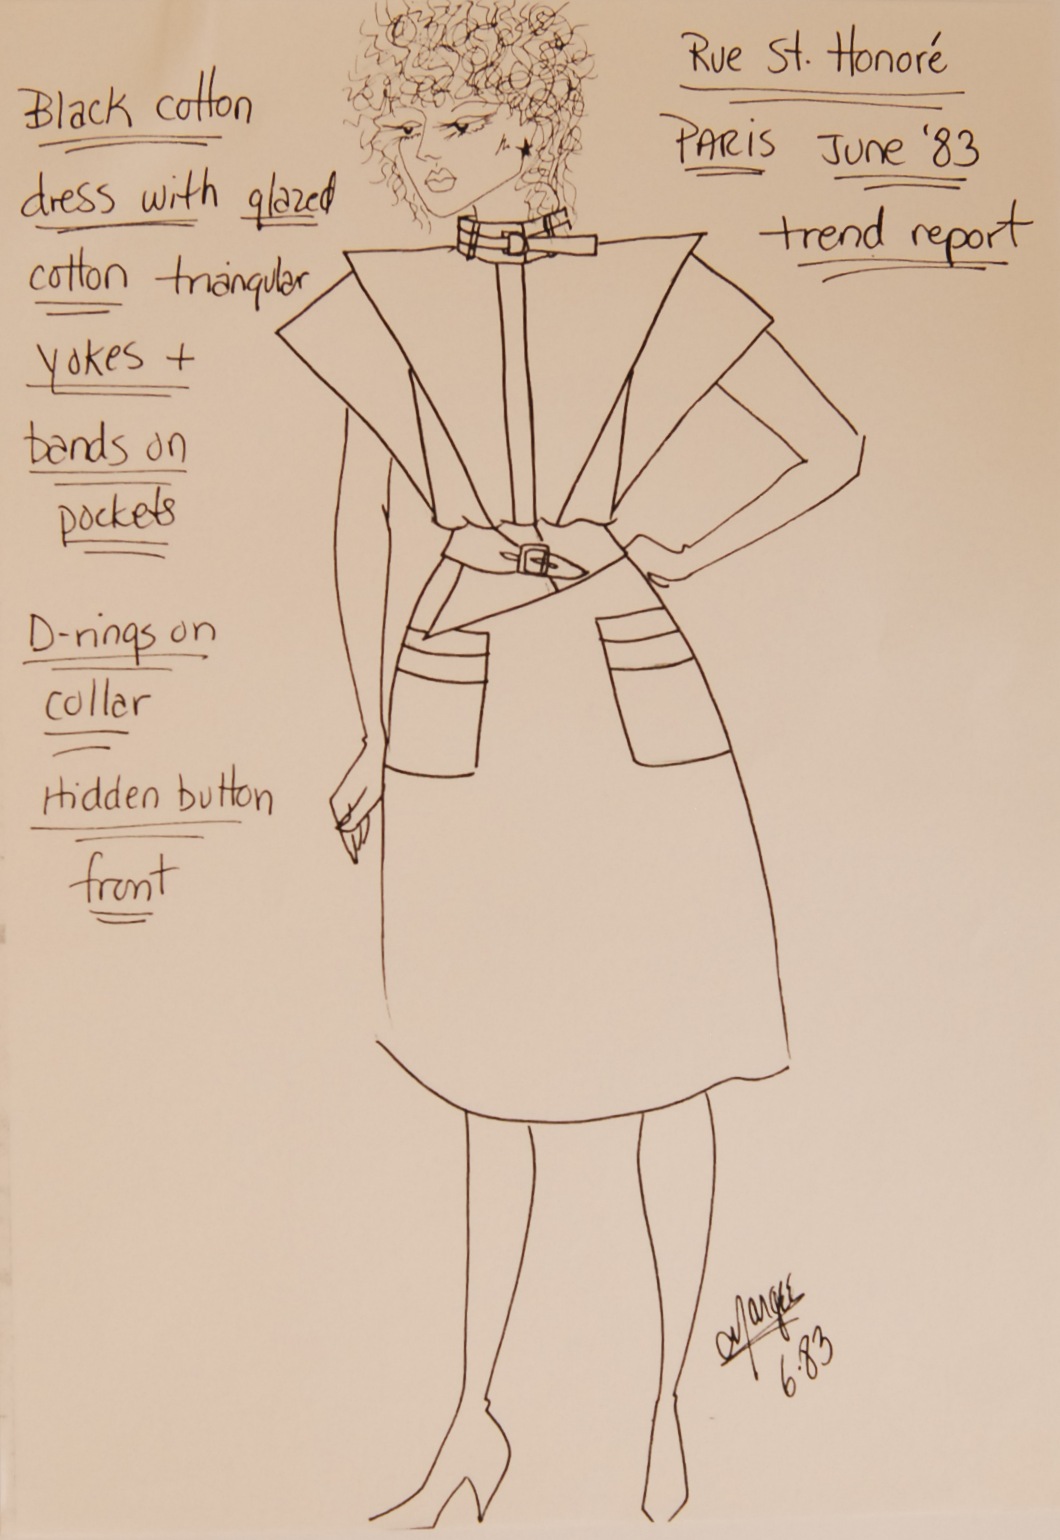 Black cotton
dress with glazed
cotton triangular
yokes +
bands on
pockets
D-rings on
collar
Hidden button
front
Rue St. Honoré
PARIS June '83
trend report
Margee
6.83